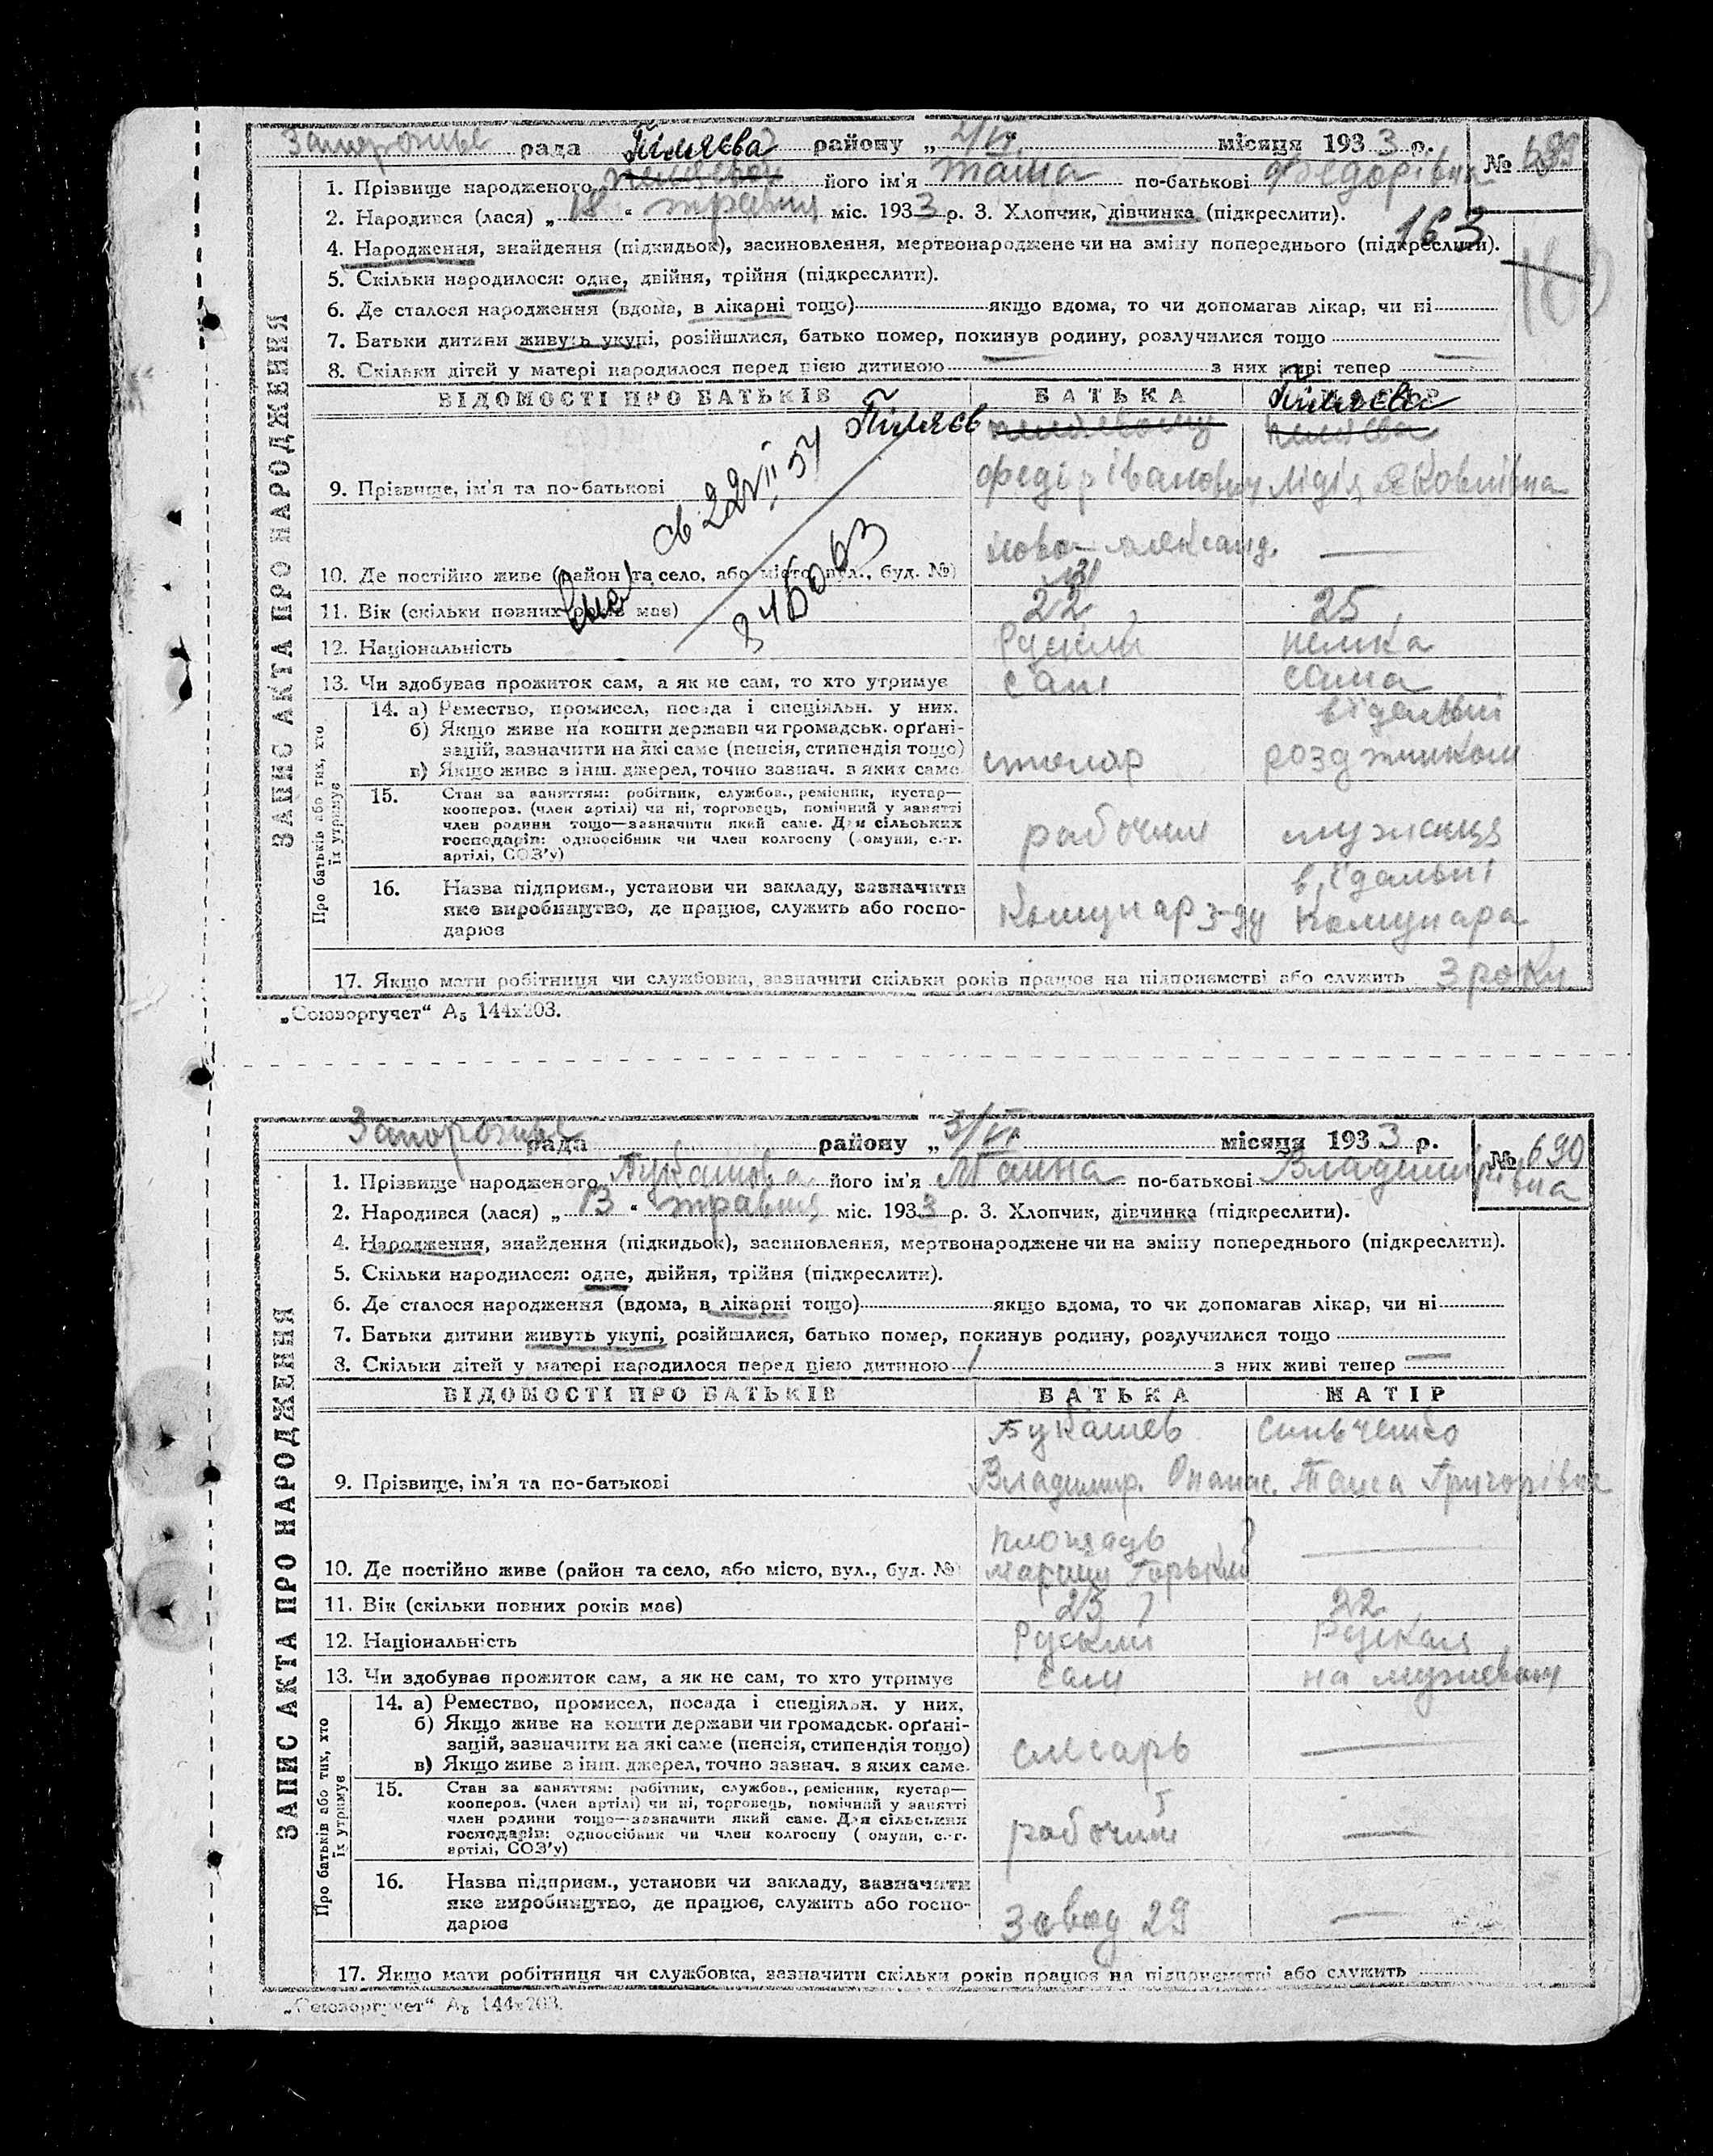 Запорожье рада Пиляєва району „ 2/VI “ місяця 1933 р. № 689
1. Прізвище народженого його ім'я Таиса по-батькові Федорівна
2. Народився (лася) „ 18 “ травня міс. 1933 р. 3. Хлопчик, дівчинка (підкреслити).
163
4. Народження, знайдення (підкидьок), засиновлення, мертвонароджене чи на зміну попереднього (підкреслити).
160
5. Скільки народилося: одне, двійня, трійня (підкреслити).
6. Де сталося народження (вдома, в лікарні тощо) якщо вдома, то чи допомагав лікар, чи ні
7. Батьки дитини живуть укупі, розійшлися, батько помер, покинув родину, розлучилися тощо —
8. Скільки дітей у матері народилося перед цією дитиною — з них живі тепер —
ЗАПИС АКТА ПРО НАРОДЖЕННЯ
ВІДОМОСТІ ПРО БАТЬКІВ БАТЬКА
Пиляєв Пиляєва
9. Прізвище, ім'я та по-батькові Федір Іванович Лідія Яковлівна
св 22/II 57
346063
Ново-Александ. —
10. Де постійно живе (район та село, або місто, вул., буд. №)
11. Вік (скільки повних років має) 22 25
12. Національність Руский немка
13. Чи здобуває прожиток сам, а як не сам, то хто утримує сам сама
Про батьків або тих, хто їх утримує
14. а) Ремество, промисел, посада і спеціяльн. у них.
б) Якщо живе на кошти держави чи громадськ. орґані-
зацій, зазначити на які саме (пенсія, стипендія тощо)
в) Якщо живе з інш. джерел, точно зазнач. з яких саме. столяр
15. Стан за заняттям: робітник, службов., ремісник, кустар—
коопероз. (член артілі) чи ні, торговець, помічний у занятті
член родини тощо—зазначити який саме. Для сільських
господарів: одноосібник чи член колгоспу (комуни, с.-г.
артілі, СОЗ'у) рабочий служаща
16. Назва підприєм., установи чи закладу, зазначити
яке виробництво, де працює, служить або госпо-
дарює Комунар з-ду в їдальні Комунара
17. Якщо мати робітниця чи службовка, зазначити скільки років працює на підприємстві або служить 3 роки
„Союзоргучет“ А5 144х203.
Запорожье рада району „ 3/VI “ місяця 1933 р. № 690
1. Прізвище народженого Букашова його ім'я по-батькові Владимирівна
2. Народився (лася) „ 13 “ травня міс. 1933 р. 3. Хлопчик, дівчинка (підкреслити).
4. Народження, знайдення (підкидьок), засиновлення, мертвонароджене чи на зміну попереднього (підкреслити).
5. Скільки народилося: одне, двійня, трійня (підкреслити).
6. Де сталося народження (вдома, в лікарні тощо) якщо вдома, то чи допомагав лікар, чи ні
7. Батьки дитини живуть укупі, розійшлися, батько помер, покинув родину, розлучилися тощо
8. Скільки дітей у матері народилося перед цією дитиною 1 з них живі тепер —
ЗАПИС АКТА ПРО НАРОДЖЕННЯ
ВІДОМОСТІ ПРО БАТЬКІВ БАТЬКА МАТІР
Букашев Синьченко
9. Прізвище, ім'я та по-батькові Владимир. Опанас. Таиса Григорівна
площадь
10. Де постійно живе (район та село, або місто, вул., буд. №) Горький —
11. Вік (скільки повних років має) 23 22
12. Національність Руский Руская
13. Чи здобуває прожиток сам, а як не сам, то хто утримує сам на
Про батьків або тих, хто їх утримує
14. а) Ремество, промисел, посада і спеціяльн. у них.
б) Якщо живе на кошти держави чи громадськ. орґані-
зацій, зазначити на які саме (пенсія, стипендія тощо) слесарь —
в) Якщо живе з інш. джерел, точно зазнач. з яких саме.
15. Стан за заняттям: робітник, службов., ремісник, кустар—
коопероз. (член артілі) чи ні, торговець, помічний у занятті
член родини тощо—зазначити який саме. Для сільських
господарів: одноосібник чи член колгоспу (комуни, с.-г.
артілі, СОЗ'у) рабочий —
16. Назва підприєм., установи чи закладу, зазначити
яке виробництво, де працює, служить або госпо-
дарює Завод 29 —
17. Якщо мати робітниця чи службовка, зазначити скільки років працює на підприємстві або служить
„Союзоргучет“ А5 144х203.